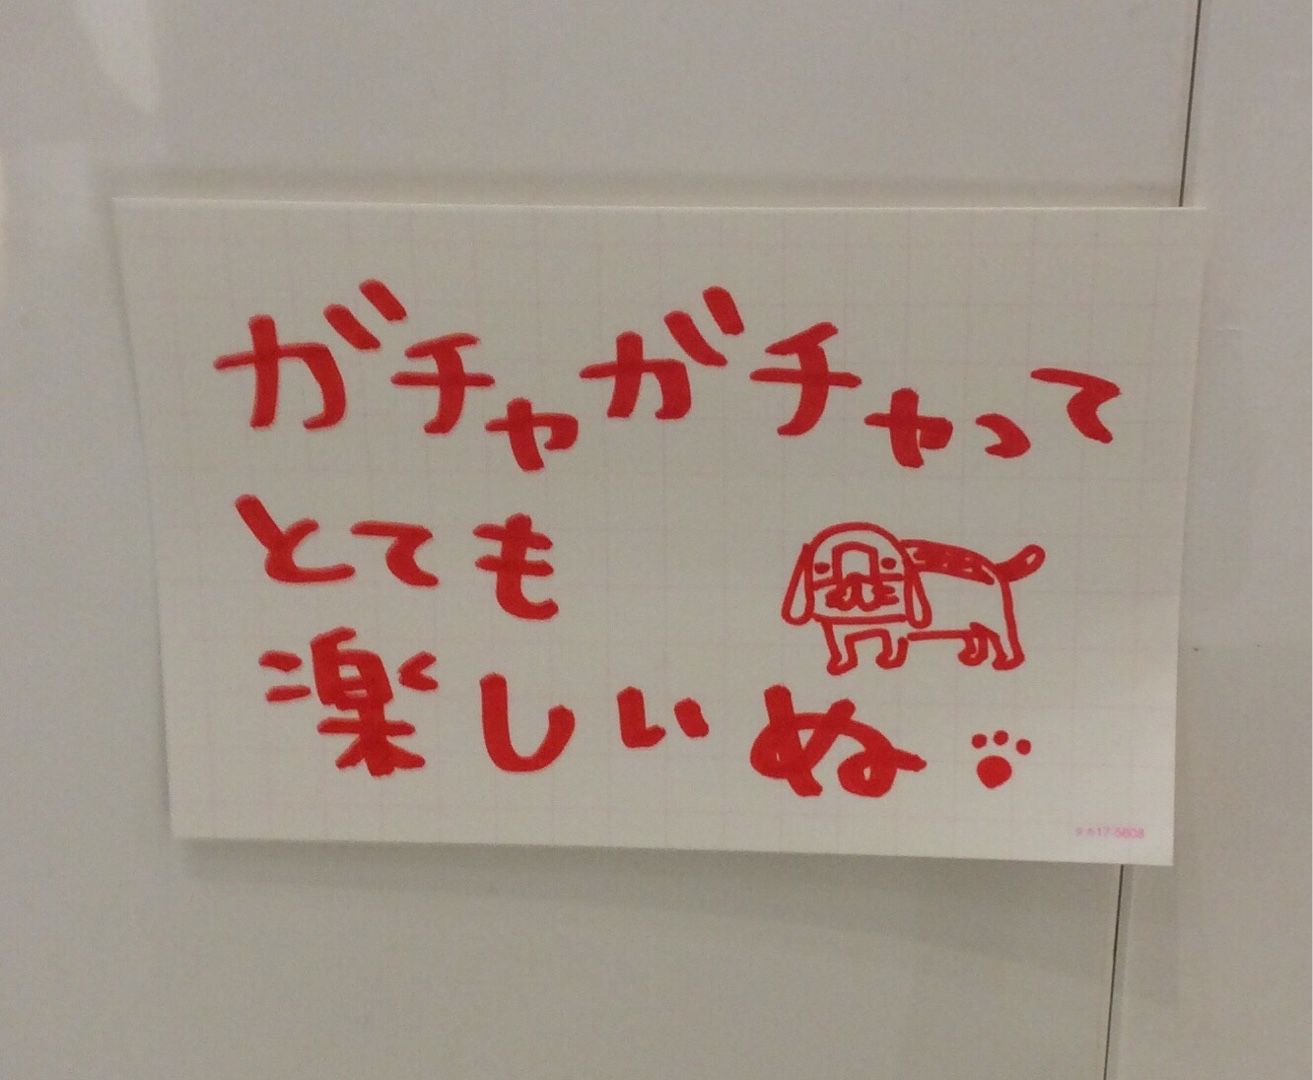 ガチャガチャって
とても
楽しいぬ
タカ17-5608